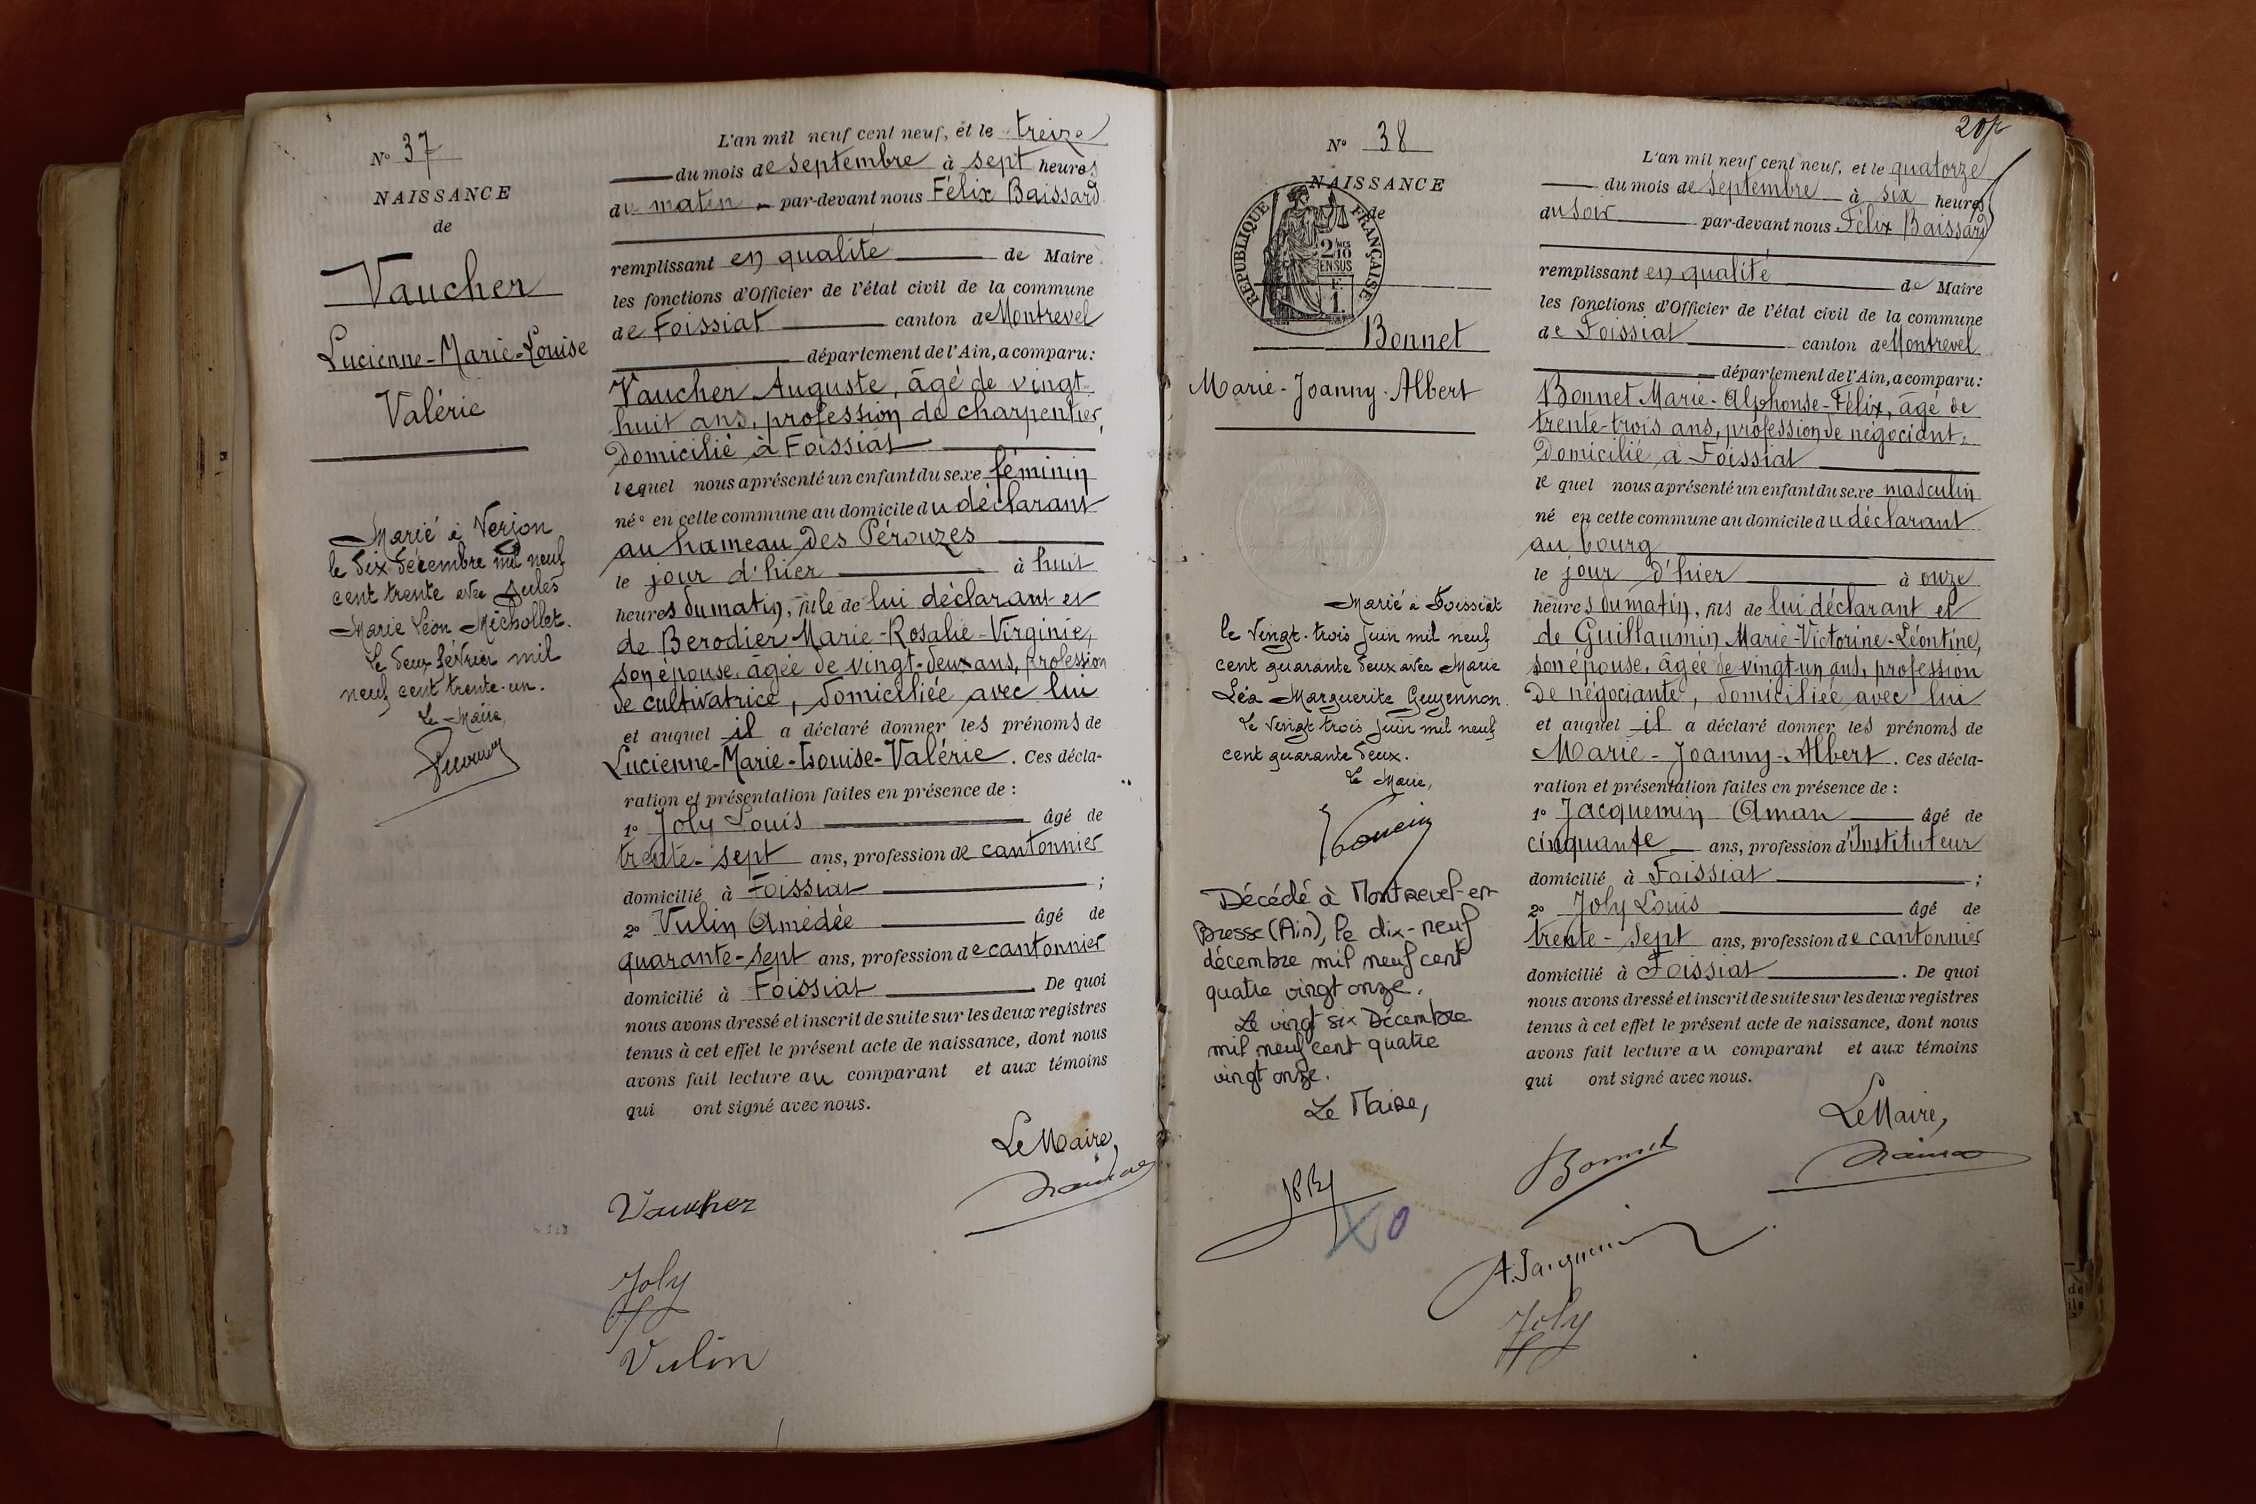 N° 37
NAISSANCE
de
Vaucher
Lucienne-Marie-Louise
Valérie
Marié à Verjon
le six décembre mil neuf
cent trente avec Jules
Marie Léon Michollet.
Le deux février mil
neuf cent trente-un.
Le Maire,
L'an mil neuf cent neuf, et le treize
du mois de septembre à sept heures
du matin par-devant nous Félix Baissard
remplissant en qualité de Maire
les fonctions d'Officier de l'état civil de la commune
de Foissiat canton de Montrevel
département de l'Ain, a comparu:
Vaucher Auguste, âgé de vingt-
huit ans, profession de charpentier,
domicilié à Foissiat
lequel nous a présenté un enfant du sexe féminin
née en cette commune au domicile du déclarant
au hameau des Pérouzes
le jour d'hier à huit
heures du matin, fille de lui déclarant et
de Berodier Marie-Rosalie-Virginie,
son épouse, âgée de vingt-deux ans, profession
de cultivatrice, domiciliée avec lui
et auquel il a déclaré donner les prénoms de
Lucienne-Marie-Louise-Valérie. Ces décla-
ration et présentation faites en présence de :
1° Joly Louis âgé de
trente-sept ans, profession de cantonnier
domicilié à Foissiat ;
2° Vulin Amédée âgé de
quarante-sept ans, profession de cantonnier
domicilié à Foissiat. De quoi
nous avons dressé et inscrit de suite sur les deux registres
tenus à cet effet le présent acte de naissance, dont nous
avons fait lecture au comparant et aux témoins
qui ont signé avec nous.
Le Maire,
Vaucher
Joly
Vulin
N° 38
NAISSANCE
de
REPUBLIQUE FRANÇAISE
2 10MES
EN SUS
F.
1.
Bonnet
Marie-Joanny-Albert
Marié à Foissiat
le vingt-trois juin mil neuf
cent quarante deux avec Marie
Léa Marguerite Guyennon.
Le vingt trois juin mil neuf
cent quarante deux.
Le Maire,
Décédé à Montrevel-en-
Bresse (Ain), le dix-neuf
décembre mil neuf cent
quatre vingt onze.
Le vingt six Décembre
mil neuf cent quatre
vingt onze.
Le Maire,
L'an mil neuf cent neuf, et le quatorze
du mois de septembre à six heures
du soir par-devant nous Félix Baissard
remplissant en qualité de Maire
les fonctions d'Officier de l'état civil de la commune
de Foissiat canton de Montrevel
département de l'Ain, a comparu:
Bonnet Marie-Alphonse-Félix, âgé de
trente-trois ans, profession de négociant,
domicilié à Foissiat
lequel nous a présenté un enfant du sexe masculin
né en cette commune au domicile du déclarant
au bourg
le jour d'hier à onze
heures du matin, fils de lui déclarant et
de Guillaumin Marie-Victorine-Léontine,
son épouse, âgée de vingt-un ans, profession
de négociante, domiciliée avec lui
et auquel il a déclaré donner les prénoms de
Marie-Joanny-Albert. Ces décla-
ration et présentation faites en présence de :
1° Jacquemin Aman âgé de
cinquante ans, profession d'Instituteur
domicilié à Foissiat ;
2° Joly Louis âgé de
trente-sept ans, profession de cantonnier
domicilié à Foissiat. De quoi
nous avons dressé et inscrit de suite sur les deux registres
tenus à cet effet le présent acte de naissance, dont nous
avons fait lecture au comparant et aux témoins
qui ont signé avec nous.
Le Maire,
Bonnet
A. Jacquemin
Joly